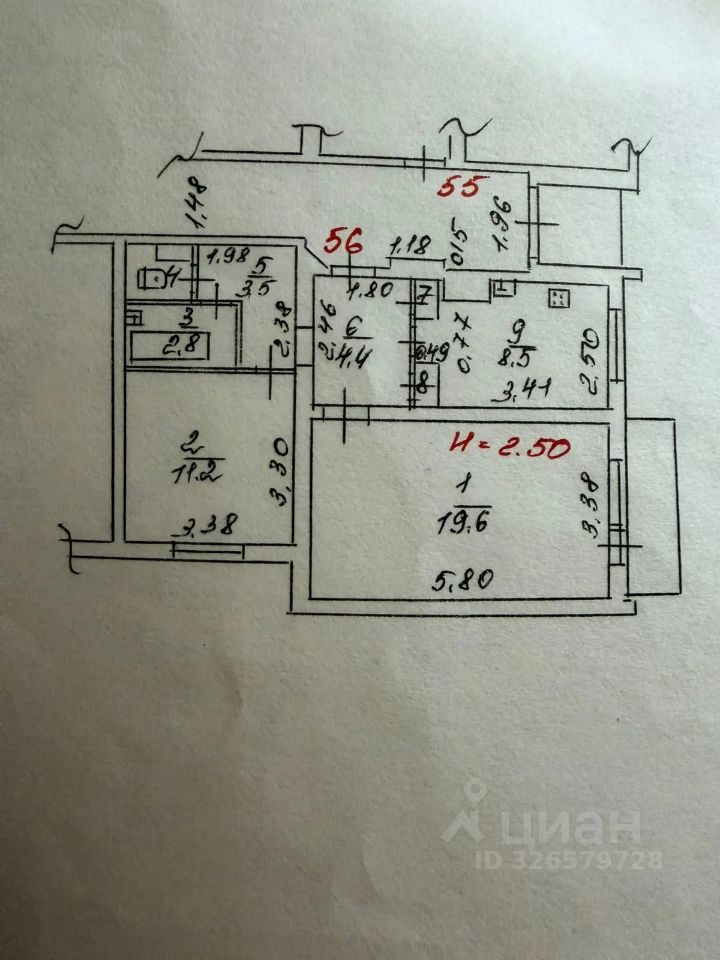 55
1.48
1.96
0.15
56
1.18
1.98
5
3.5
4
1.80
7
3
2.8
2.38
2.46
6
4.4
0.49
8
0.77
9
8.5
3.41
2.50
2
11.2
3.30
3.38
H = 2.50
1
19.6
3.38
5.80
циан
ID 326579728